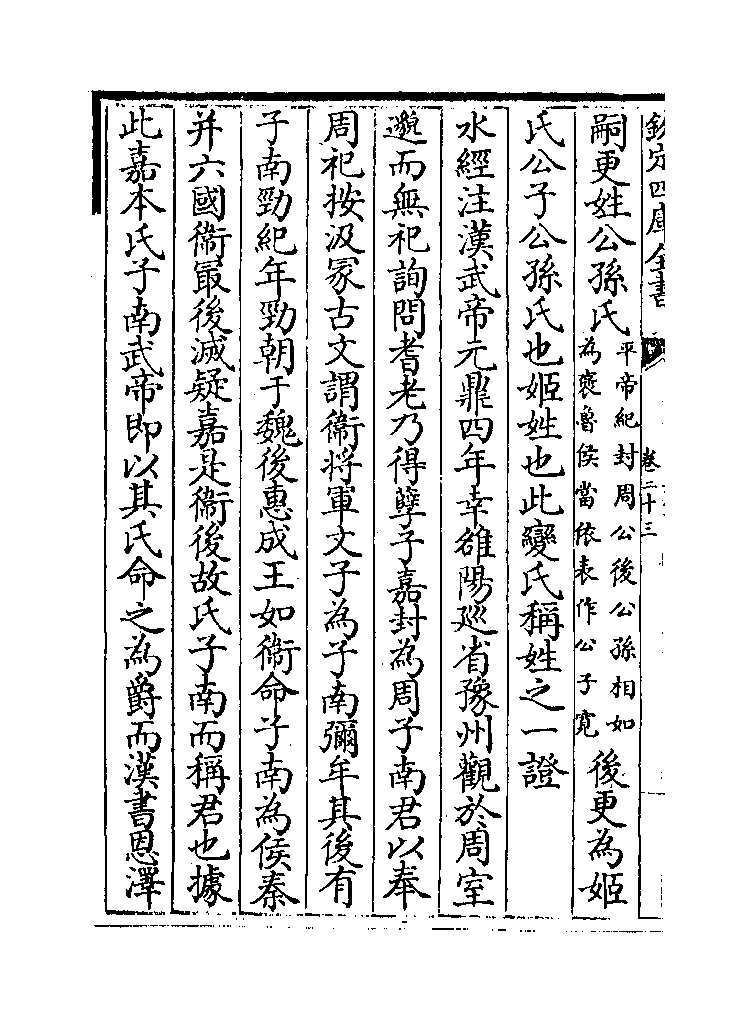 欽定四庫全書
卷二十三
嗣更姓公孫氏平帝紀封周公後公孫相如為褒魯侯當依表作公子寬後更為姬
氏公子公孫氏也姬姓也此變氏稱姓之一證
水經注漢武帝元鼎四年幸雒陽巡省豫州觀於周室
邈而無祀詢問耆老乃得孽子嘉封為周子南君以奉
周祀按汲冢古文謂衛將軍文子為子南彌牟其後有
子南勁紀年勁朝于魏後惠成王如衛命子南為侯秦
并六國衛最後滅疑嘉是衛後故氏子南而稱君也據
此嘉本氏子南武帝即以其氏命之為爵而漢書恩澤